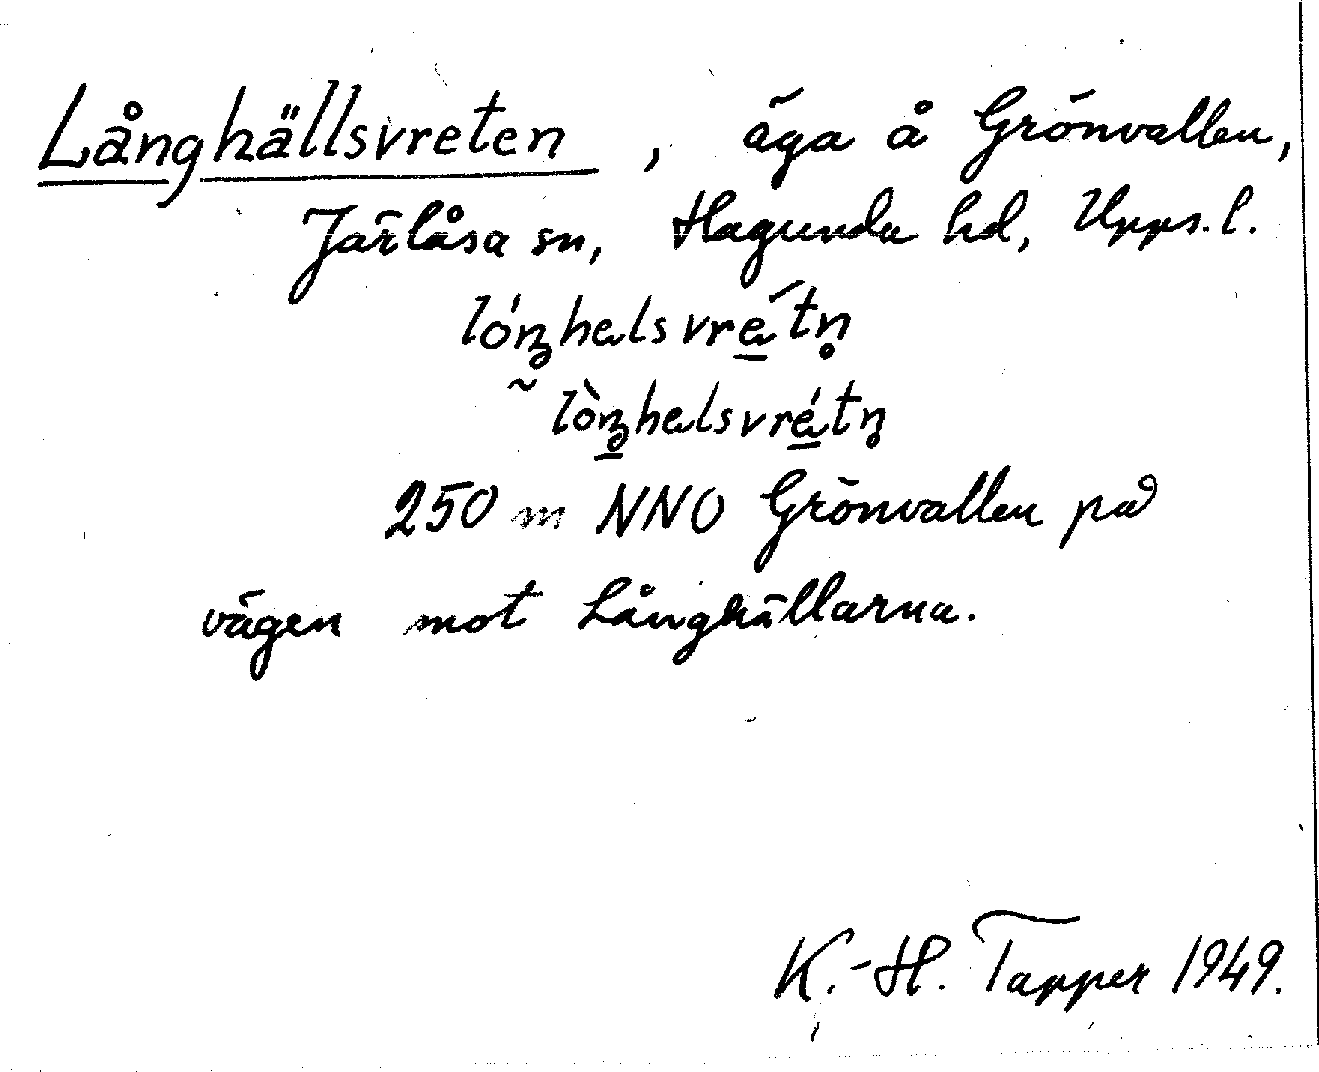 Långhällsvreten, äga å Grönvallen,
Järlåsa sn, Hagunda hd, Upps. l.
lóŋhelsvre̲´tn̥
~ lòŋ̲helsvré̲tn̥
250 m NNO Grönvallen på
vägen mot Långhällarna.
K.-H. Tapper 1949.